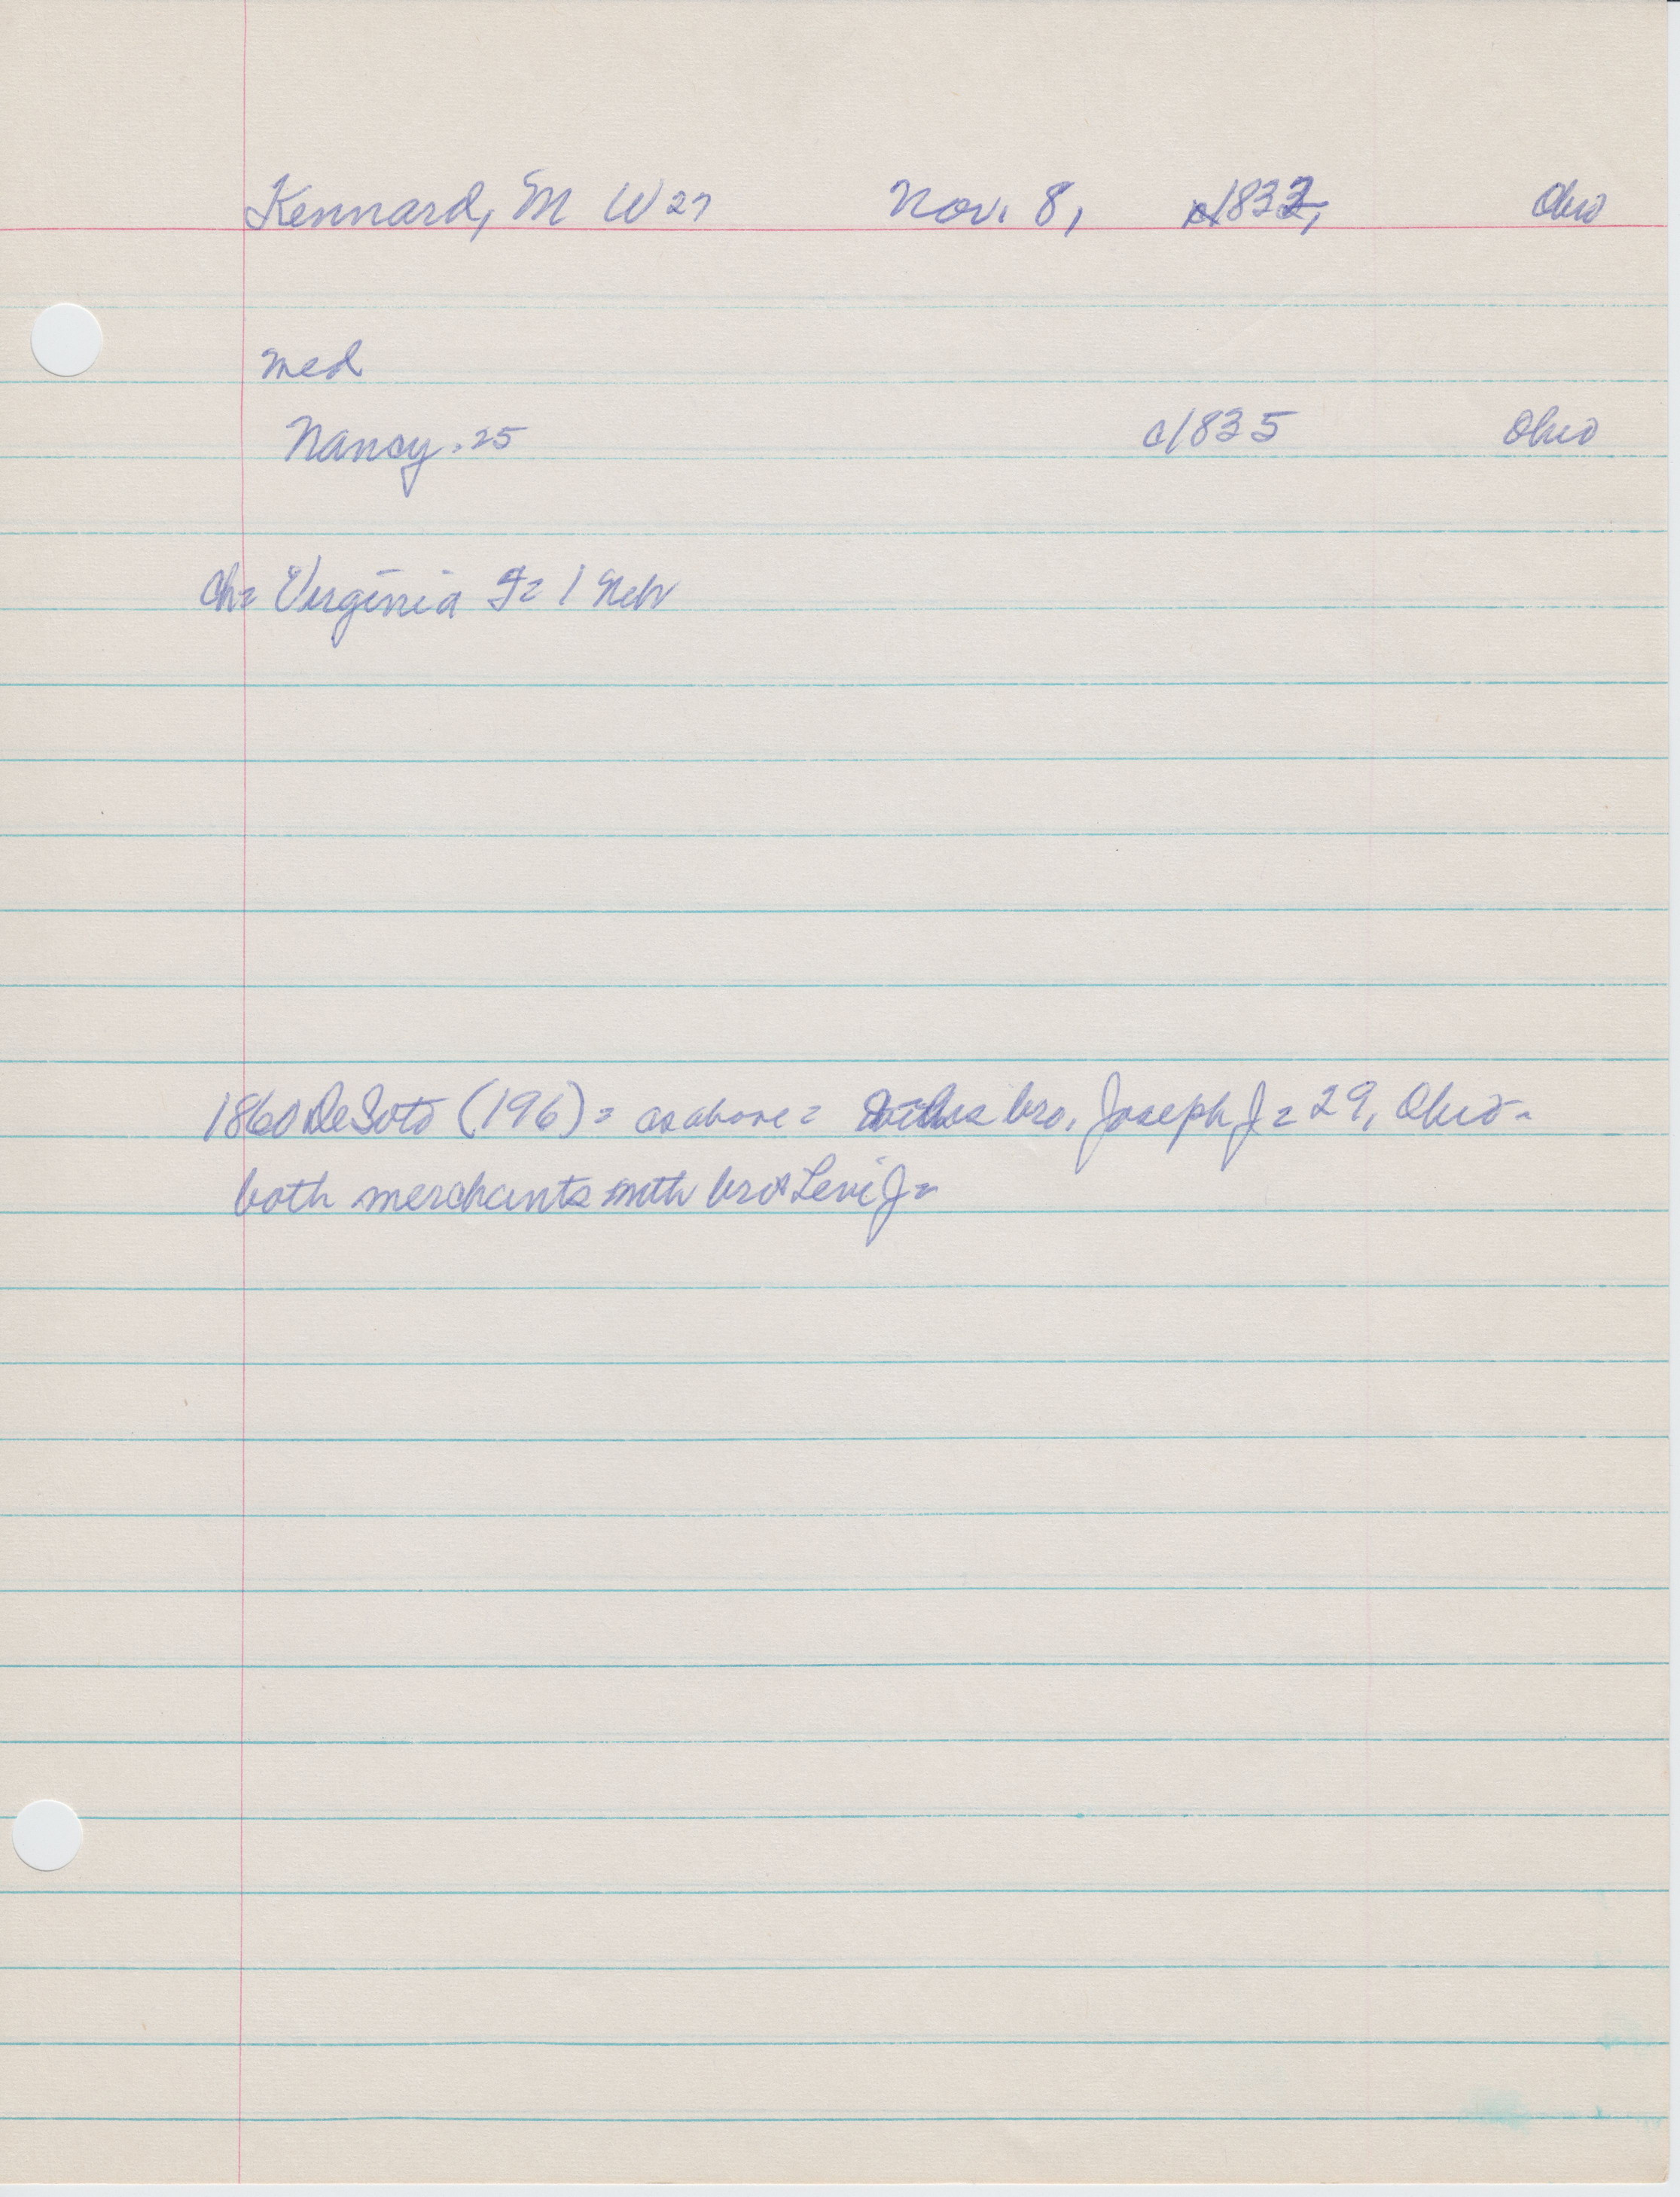 Kennard, M W 27 Nov. 8, c1833, Ohio
med
Nancy - 25 c1835 Ohio
Ch= Virginia I= 1 Neb
1860 DeSoto (196) = as above = bro. Joseph J= 29, Ohio-
both merchants with bro Levi J=